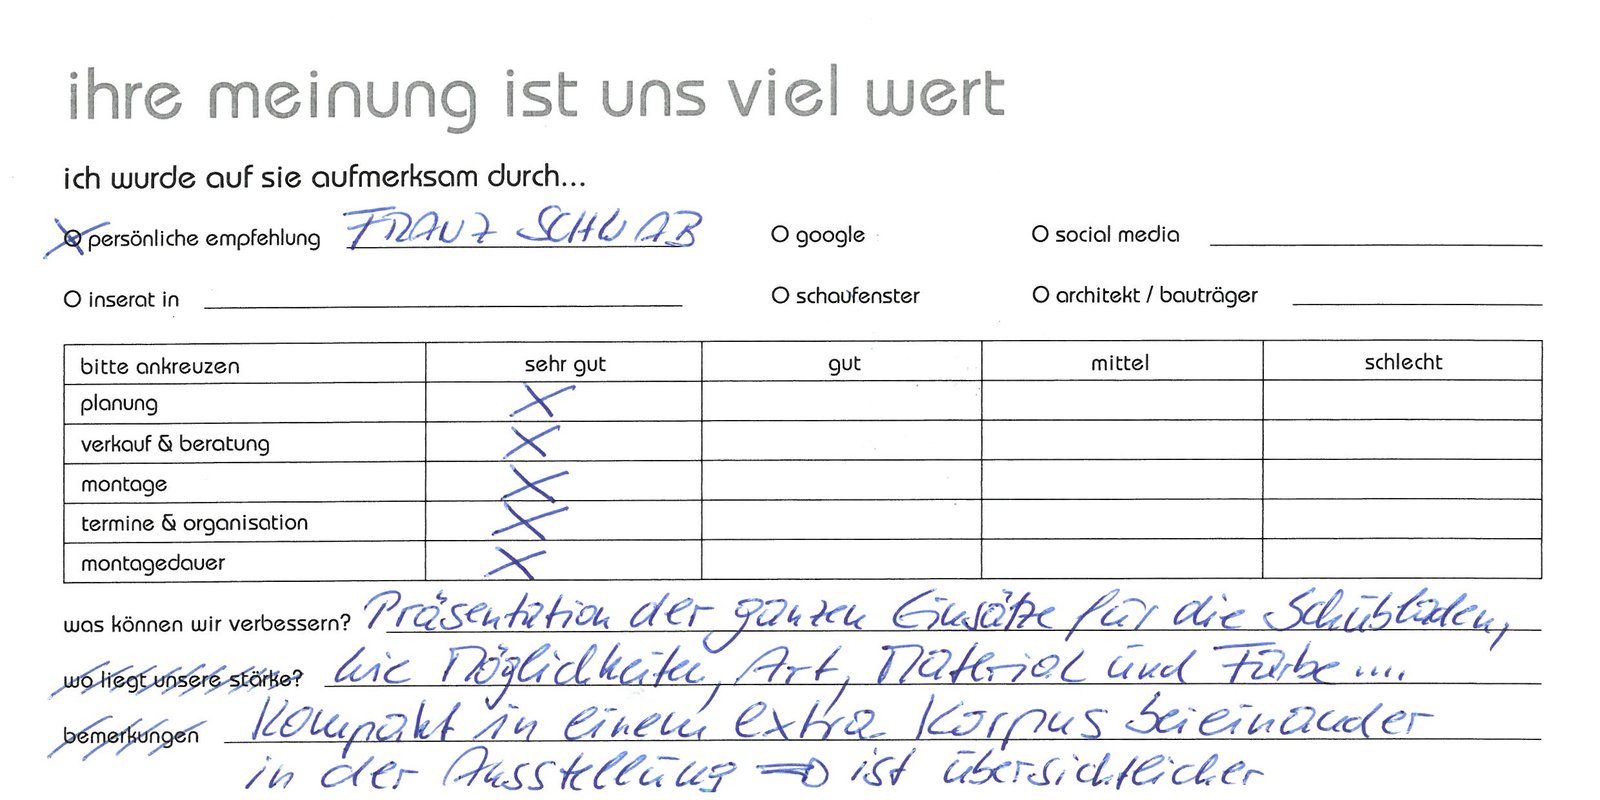 ihre meinung ist uns viel wert
ich wurde auf sie aufmerksam durch...
persönliche empfehlung FRANZ SCHWAB O google O social media
O inserat in O schaufenster O architekt / bauträger
bitte ankreuzen sehr gut gut mittel schlecht
planung X
verkauf & beratung X
montage X
termine & organisation X
montagedauer X
was können wir verbessern? Präsentation der ganzen Einsätze für die Schubladen,
wo liegt unsere stärke? wie Möglichkeiten, Art, Material und Farbe....
bemerkungen Kompakt in einem extra Korpus beieinander
in der Ausstellung => ist übersichtlicher